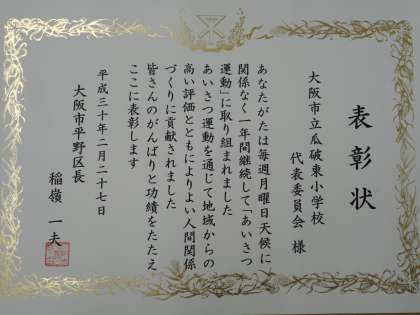 表彰状
大阪市立瓜破東小学校
代表委員会 様
あなたがたは毎週月曜日天候に
関係なく一年間継続して「あいさつ
運動」に取り組まれました
あいさつ運動を通じて地域からの
高い評価とともによりよい人間関係
づくりに貢献されました
皆さんのがんばりと功績をたたえ
ここに表彰します
平成三十年二月二十七日
大阪市平野区長
稲嶺 一夫